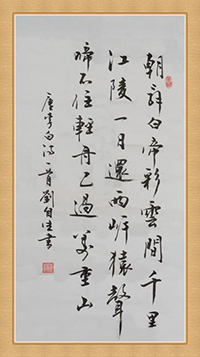 朝辞白帝彩雲間千里
江陵一日還兩岍猿聲
啼不住輕舟已過萬重山
唐李白詩一首劉自生書